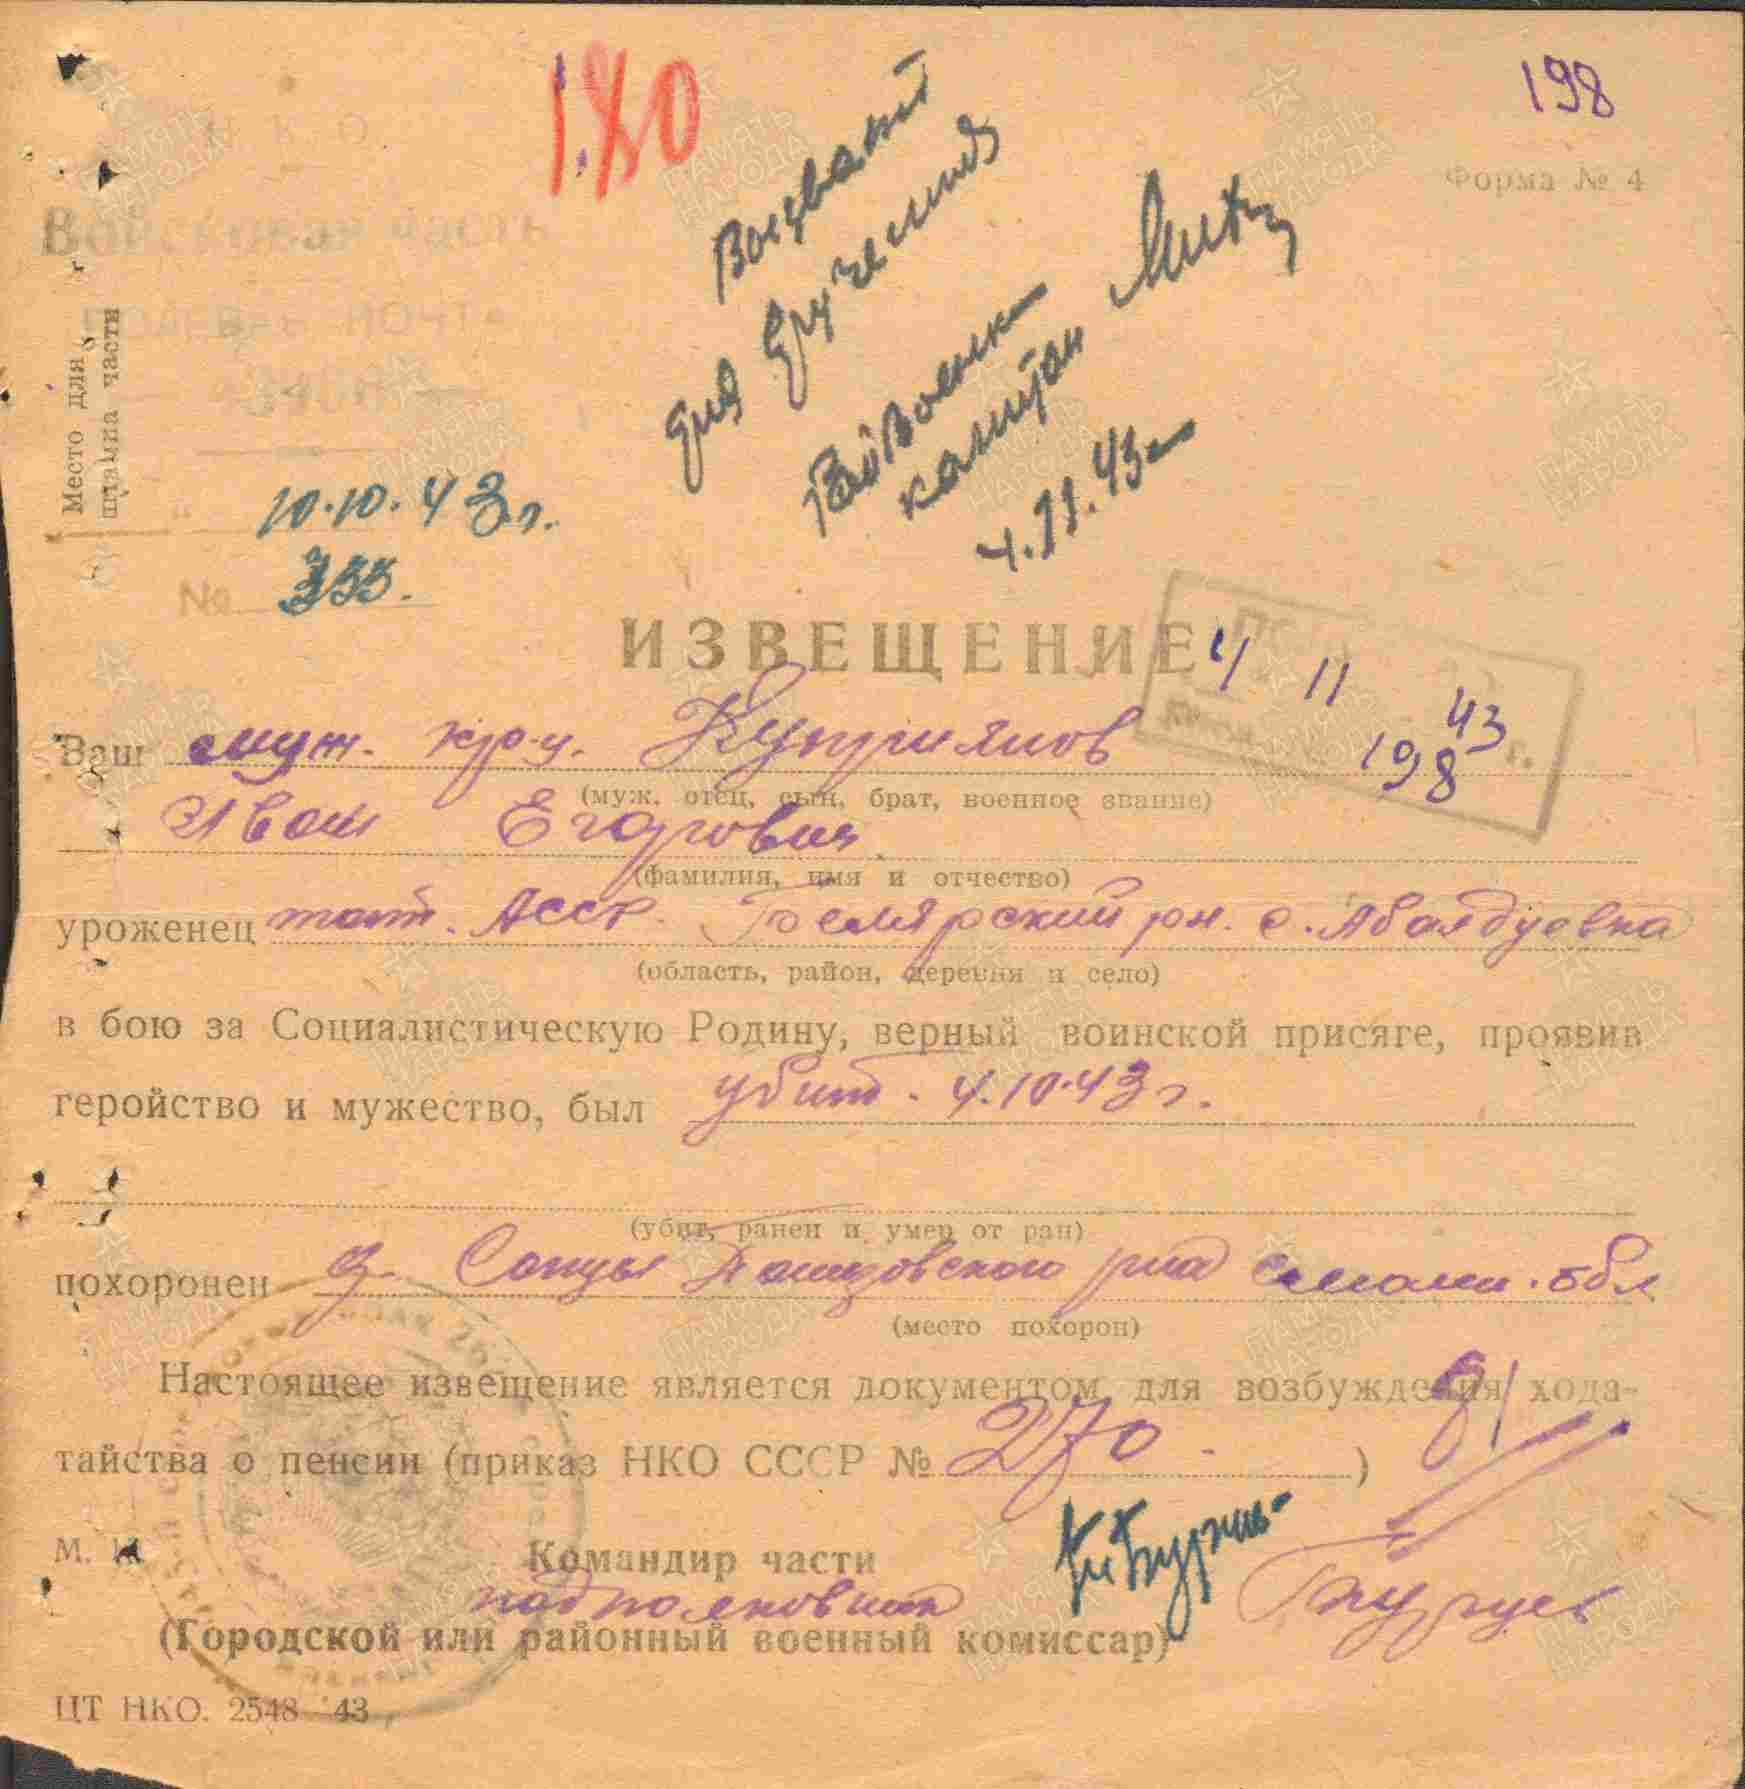 НКО
1.80
198
Форма № 4
Войсковая часть
ПОЛЕВАЯ ПОЧТА
Место для
штампа части
для вручения
капитан
4.11.43
10.10.43 г.
№ 355.
ИЗВЕЩЕНИЕ
4 11 43 г.
198
Ваш муж. кр-ц. Куприянов
(муж, отец, сын, брат, военное звание)
Иван Егорович
(фамилия, имя и отчество)
уроженец тат. АССР. Билярский рн. с. Абалдуевка
(область, район, деревня и село)
в бою за Социалистическую Родину, верный воинской присяге, проявив
геройство и мужество, был убит. 4.10.43 г.
(убит, ранен и умер от ран)
похоронен д. Сопцы рна смолен. обл
(место похорон)
Настоящее извещение является документом для возбуждения хода-
тайства о пенсии (приказ НКО СССР № 270)
М. П.
Командир части
подполковник
(Городской или районный военный комиссар)
ЦТ НКО. 2548 43
ПАМЯТЬ НАРОДА